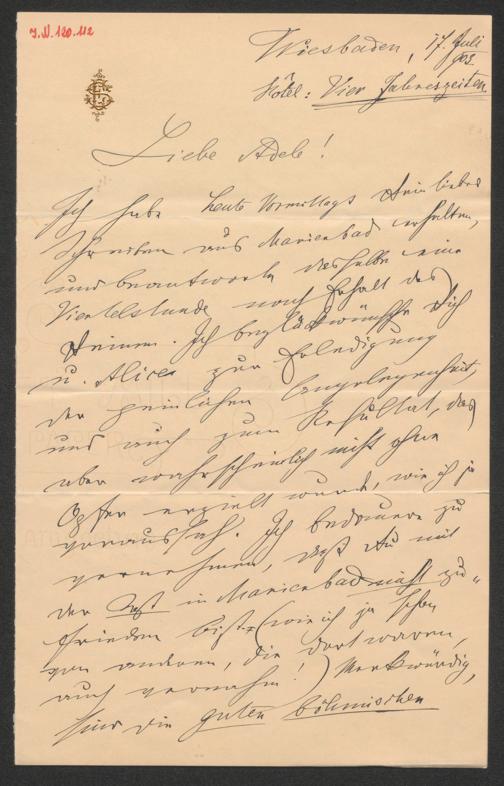 J.N. 120.112
Wiesbaden, 17. Juli
903.
Hôtel: Vier Jahreszeiten
Liebe Adele!
Ich habe heute Vormittags Dein liebes
Schreiben aus Marienbad erhalten,
und beantworte dasselbe eine
Viertelstunde nach Erhalt des
Deinen. Ich beglückwünsche Dich
u. Alice zur Erledigung
der peinlichen Angelegenheit,
und auch zum Resultat, das
aber wahrscheinlich nicht ohne
Opfer erzielt wurde, wie ich ja
voraussah. Ich bedauere zu
vernehmen, daß Du mit
der in Marienbad nicht zu„
frieden bist (wie ich ja schon
von anderen, die dort waren,
auch vernahm!) Merkwürdig,
sind die guten böhmischen